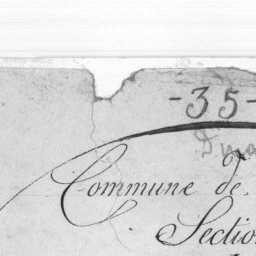 -35-
Commune de
Sectio